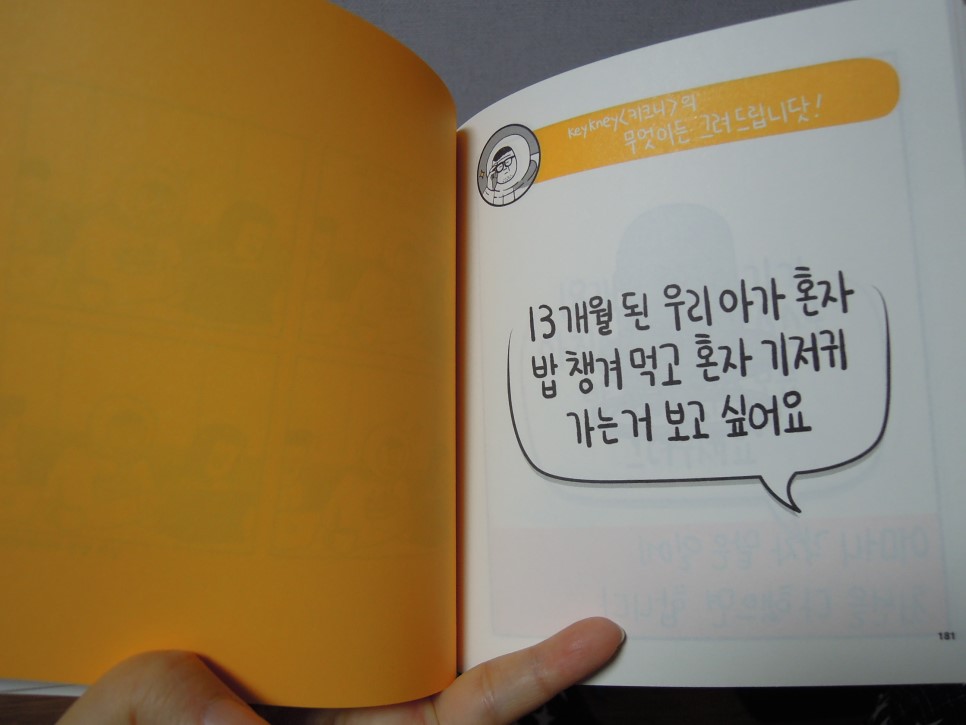 keykney<키크니>의
무엇이든 그려드립니닷!
13개월 된 우리 아가 혼자
밥 챙겨 먹고 혼자 기저귀
가는거 보고 싶어요
181